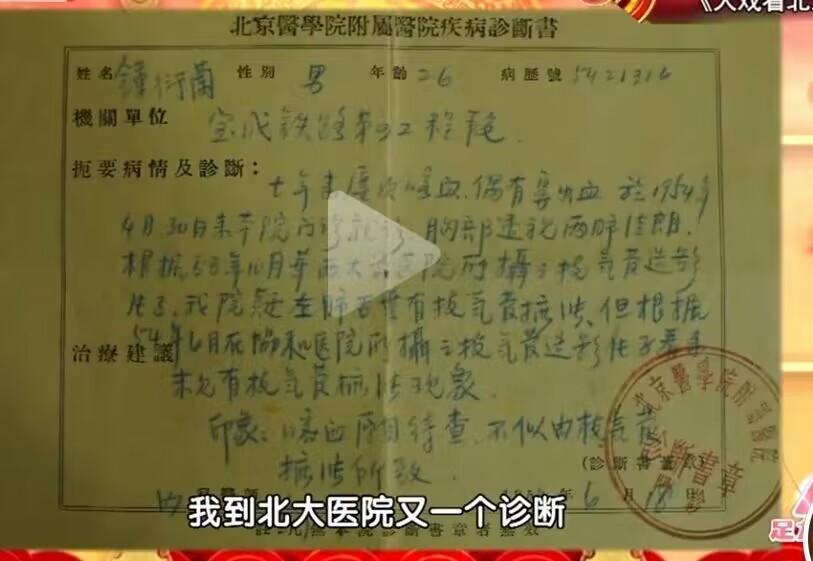 《大戏看北
北京醫學院附屬醫院疾病診斷書
姓名 鍾衍蘭 性別 男 年齡 26 病歷號 5421316
機關單位 宝成铁路第 工程
扼要病情及診斷：
七年来屡次咯血，偶有 出血 於1954年
4月30日来本院内 就诊，胸部透视两肺 朗
根据53年10月华西大 医院所摄之枝气管造影
片子，我院疑左肺 有枝气管扩张，但根据
54年6月在协和医院所摄之枝气管造影片子看来
治療建議
未见有枝气管扩张现象
印象：咯血原因待查，不似由枝气管
扩张所致
(診斷書蓋章)
年 6 月 18
北京醫學院附屬醫院
診斷書章
我到北大医院又一个诊断